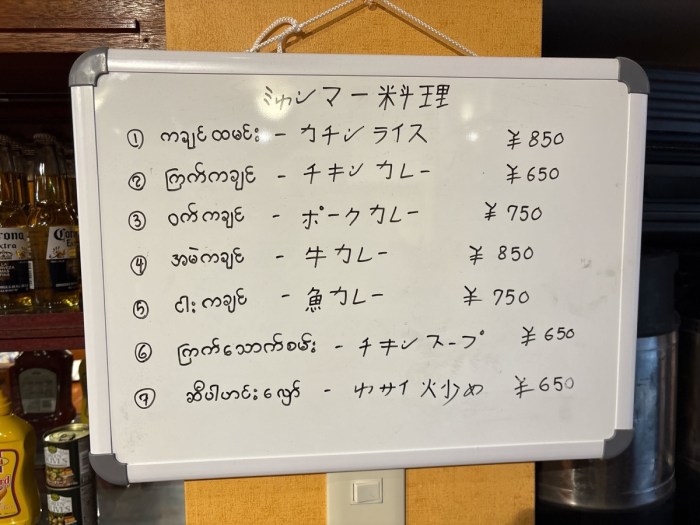 ミャンマー料理
① ကချင်ထမင်း - カチンライス ¥850
② ကြက်ကချင် - チキンカレー ¥650
③ ဝက်ကချင် - ポークカレー ¥750
④ အမဲကချင် - 牛カレー ¥850
⑤ ငါးကချင် - 魚カレー ¥750
⑥ ကြက်သောက်စမ်း - チキンスープ ¥650
⑦ ဆီပါဟင်းလျှော် - ヤサイ火少め ¥650
Corona
Extra